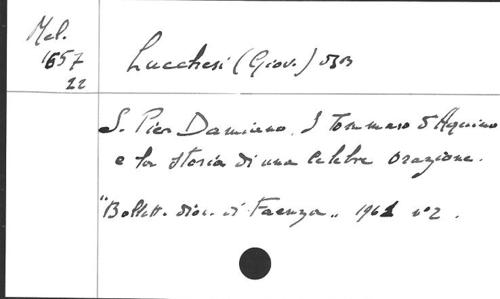 Mel.
1657
22
Lucchesi (Giov.) OSB
S. Pier Damiano, S Tommaso d'Aquino
e la storia di una celebre orazione.
"Bollett. dioc. di Faenza" 1961 n°2.